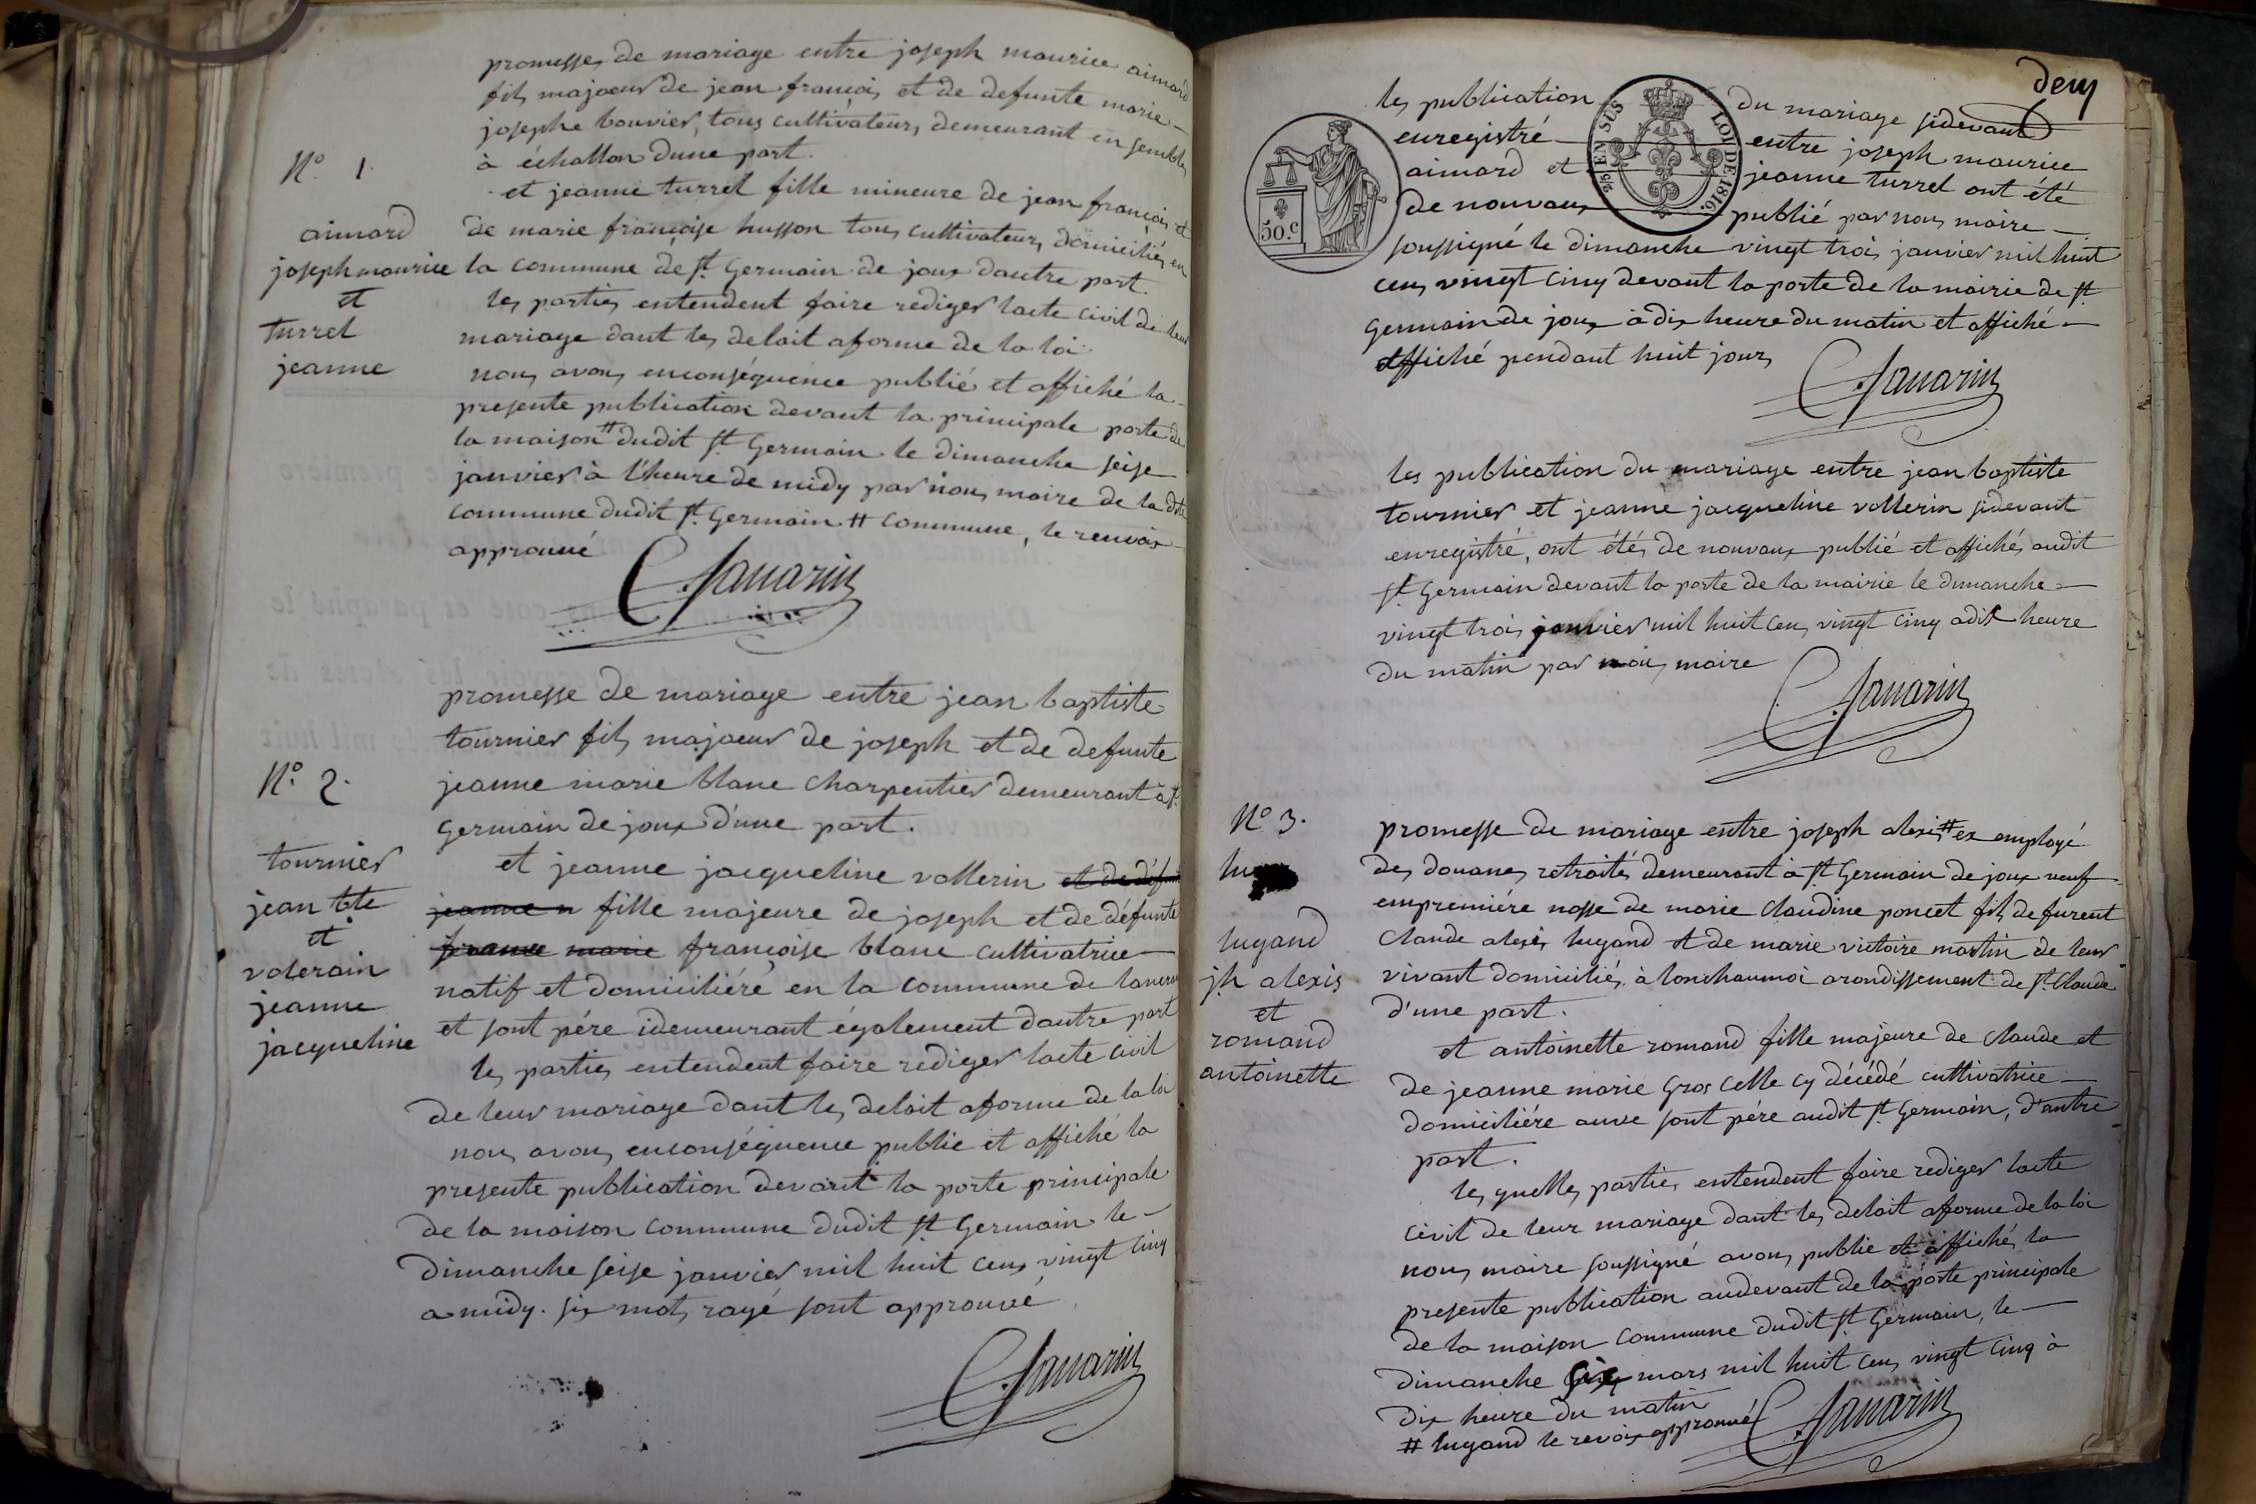 promesses de mariage entre joseph maurice aimard
fils majoeur de jean françois et de defunte marie-
josephe bouvier, tous cultivateurs demeurant en semble
à échallon d'une part.
N.o 1.
et jeanne turrel fille mineure de jean françois et
de marie françoise husson tous cultivateurs domiciliés en
la commune de St Germain de joux dautre part.
aimard
joseph maurice
et
turrel
jeanne
les parties entendent faire rediger lacte civil de leur
mariage dant les delait aforme de la loi.
nous avons enconséquence publié et affiché la
presente publication devant la principale porte de
la maison # dudit St Germain le dimanche seise
janvier à l'heure de midy par nous maire de la dte
commune dudit St Germain # commune, le renvoix
approuvé
C. Savarin
promesse de mariage entre jean baptiste
tournier fils majoeur de joseph et de defunte
jeanne marie blanc charpentier demeurant à St
Germain de joux d'une part.
N.o 2.
tournier
jean bte
et
volerain
jeanne
jacqueline
et jeanne jacqueline vollerin et de défunte
jeanne n fille majeure de joseph et de défunte
france marie françoise blanc cultivatrice
natif et domiciliére en la commune de
et sont pére idemeurant également dautre part
les parties entendent faire rediger lacte civil
de leur mariage dant les delait aforme de la loi
nous avons enconséquence publie et affiché la
presente publication devant la porte principale
de la maison commune dudit St Germain le
dimanche seise janvier mil huit cens vingt cinq
a midy. six mots rayé sont approuvé
C. Savarin
deux
les publication du mariage sidevant
enregistré entre joseph maurice
aimard et jeanne turrel ont été
de nouvaux publié par nous maire
EN SUS LOI DE 1816.
50.c
soussigné le dimanche vingt trois janvier mil huit
cens vingt cinq devant la porte de la mairie de St
Germain de joux à dix heure du matin et affiché
affiché pendant huit jours
C. Savarin
les publication du mariage entre jean baptiste
tournier et jeanne jacqueline vollerin sidevant
enregistré, ont étés de nouvaux publié et affichés audit
St Germain devant la porte de la mairie le dimanche
vingt trois janvier mil huit cens vingt cinq a dix heure
du matin par nous maire
C. Savarin
N.o 3.
lugand
jh alexis
et
romand
antoinette
promesse de mariage entre joseph alexis # ex employé
des douanes retraités demeurant à St Germain de joux veuf
empremiére nosse de marie claudine poncet fils defurent
claude alexis lugand et de marie victoire martin de leur
vivant domiciliés à lonchaumoi arondissement de St Claude
d'une part.
et antoinette romand fille majeure de claude et
de jeanne marie Gros celle cy décédé cultivatrice
domiciliére avve sont pére audit St Germain, d'autre
part.
les quelles parties entendent faire rediger lacte
civil de leur mariage dant les delait aforme de la loi
nous maire soussigné avons publie et affichés la
presente publication audevant de la porte principale
de la maison commune dudit St Germain, le
dimanche six mars mil huit cens vingt cinq à
dix heure du matin
# lugand le revoix approuvé
C. Savarin